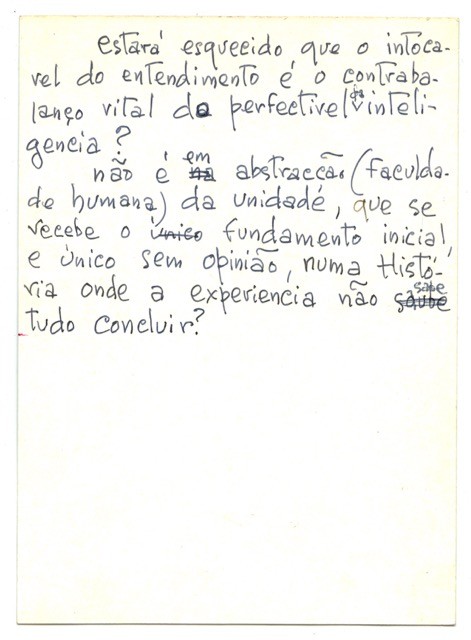 estará esquecido que o intoca-
vel do entendimento é o contraba-
lanço vital do perfectivel da inteli-
gencia?
não é em abstracção (faculda-
de humana) da unidade, que se
recebe o único fundamento inicial,
e único sem opinião, numa Histó-
ria onde a experiencia não sabe
tudo concluir?